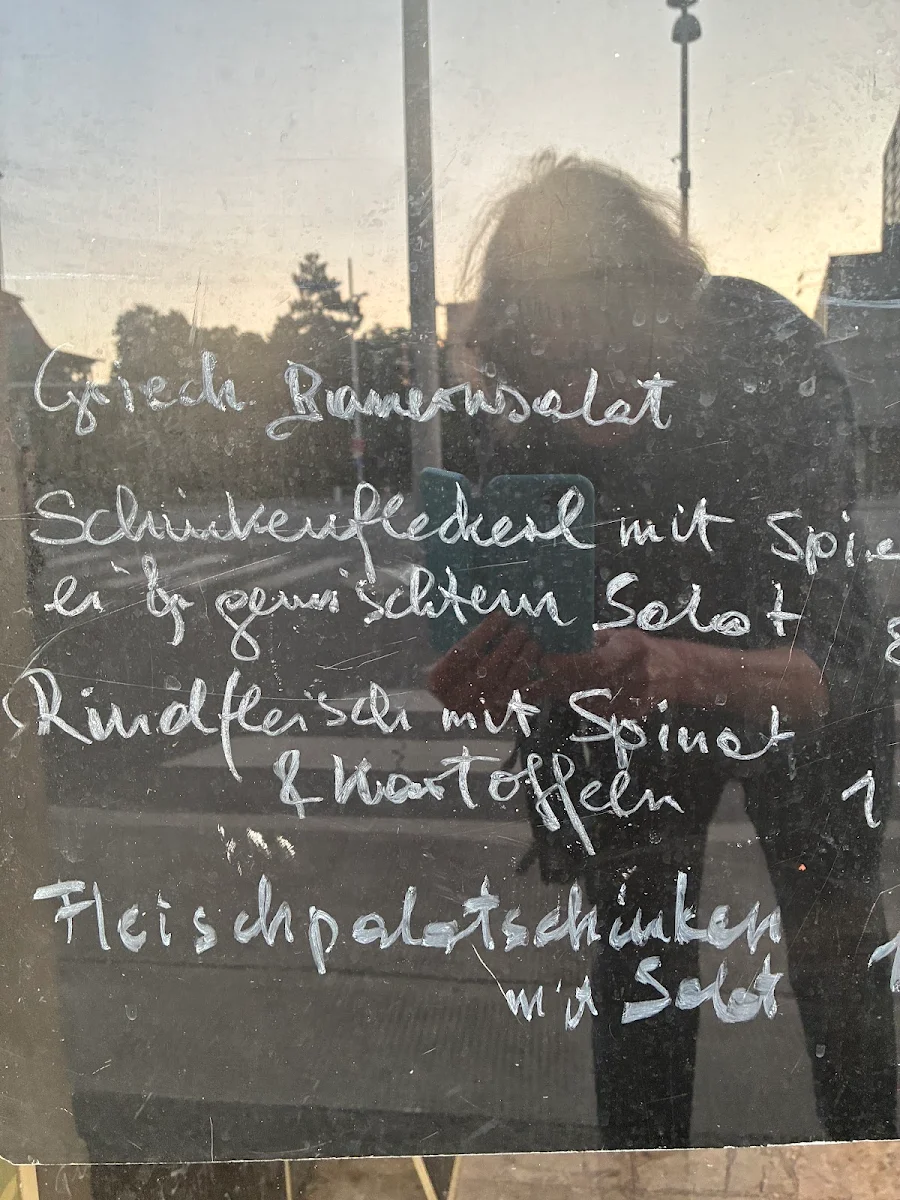 Griech. Bauernsalat
Schinkenfleckerl mit Spie
ei & gemischtem Salat
Rindfleisch mit Spinat
& Kartoffeln
Fleischpalatschinken
mit Salat